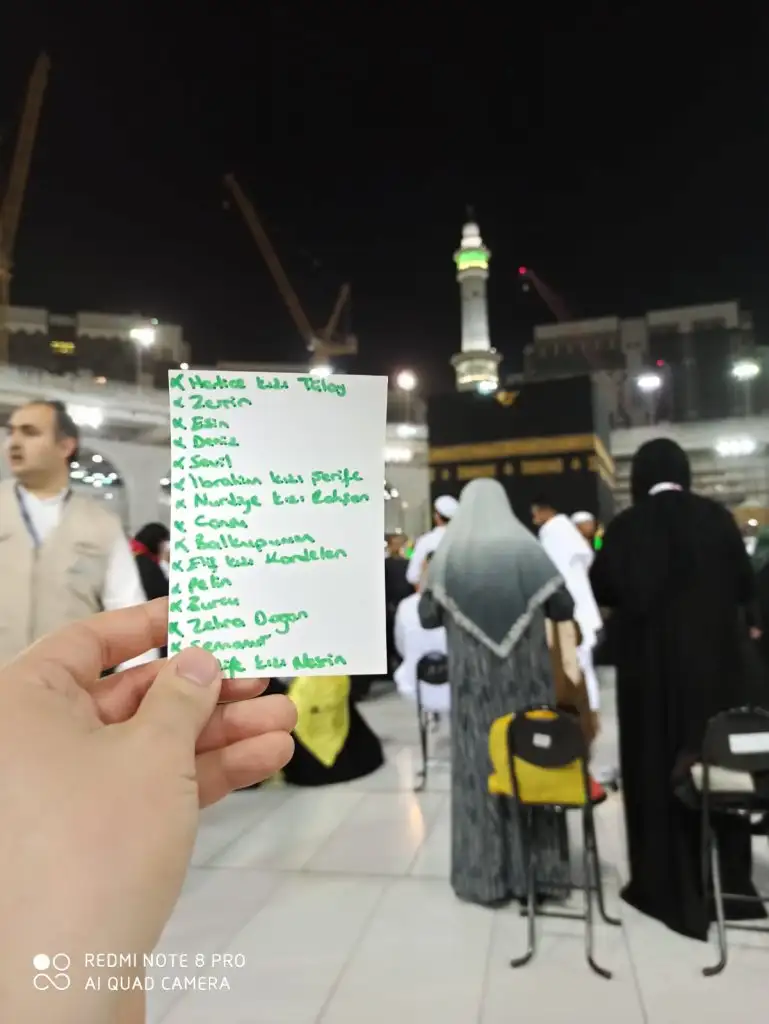 Hatice kızı Tülay
Zerrin
Esin
Deniz
Sevil
İbrahim kızı Şerife
Nuriye kızı
Elif kızı Kardelen
Pelin
Burcu
Zehra Doğan
Semanur
kızı Nesrin
REDMI NOTE 8 PRO
AI QUAD CAMERA